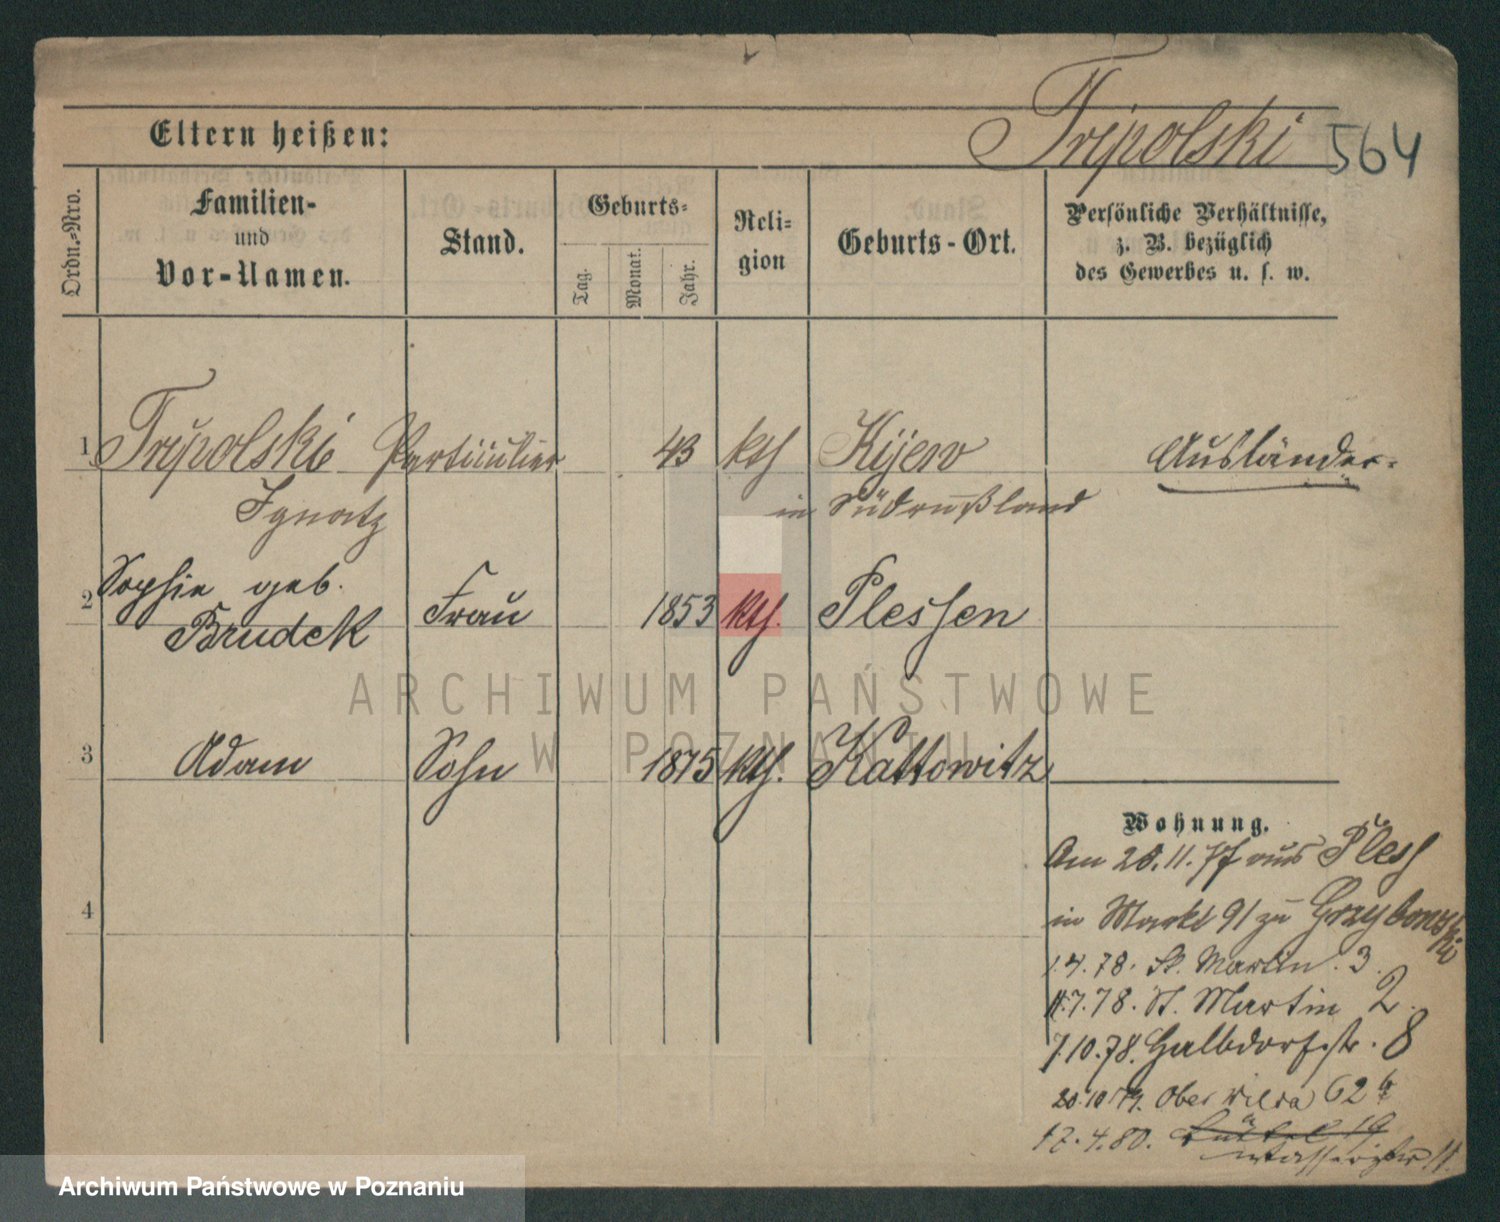 Tripolski 564
Eltern heißen:
Ordn.-Nro.
Familien-
und
Vor-Namen.
Stand.
Geburts-
Tag.
Monat.
Jahr.
Reli-
gion
Geburts-Ort.
Persönliche Verhältnisse,
z. B. bezüglich
des Gewerbes u. s. w.
1 Tripolski Particulier 43 kth Kijew Ausländer.
Ignatz in Südrußland
2 Sophie geb. Frau 1853 kth. Plessen
Brudek
3 Adam Sohn 1875 kth. Kattowitz
4
Wohnung.
Am 28.11.77 aus Pless
in Markt 91 zu Grzybowski
1.4.78. St. Martin. 3.
11.7.78. St. Martin 2.
7.10.78. Halbdorfstr. 8
20.10.79. Ober Wilda 62
17.4.80. 19
11.
ARCHIWUM PAŃSTWOWE
W POZNANIU
Archiwum Państwowe w Poznaniu